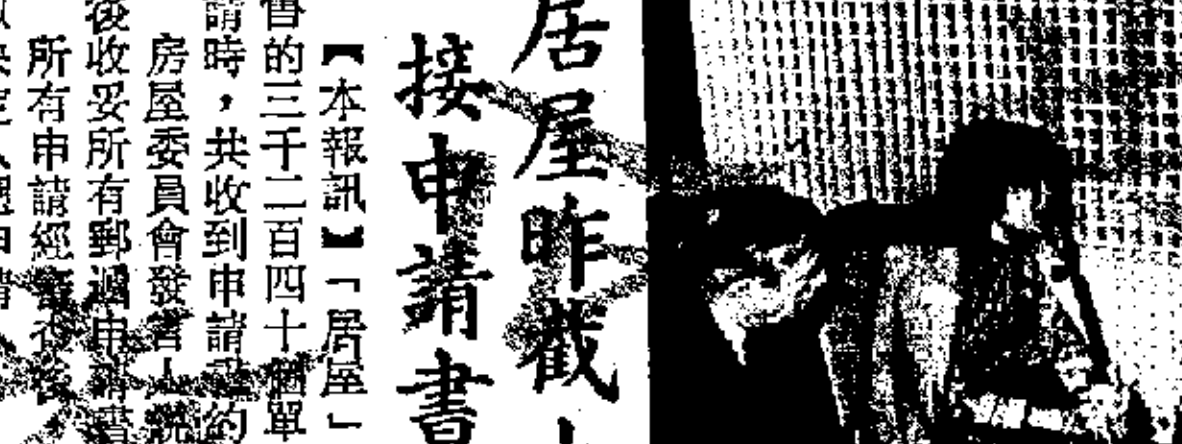 居屋昨截
接申請書
【本報訊】「居屋」
的三千二百四十個單
請時，共收到申請 約
房屋委員會發言人說
後收妥所有郵遞申請書
所有申請經